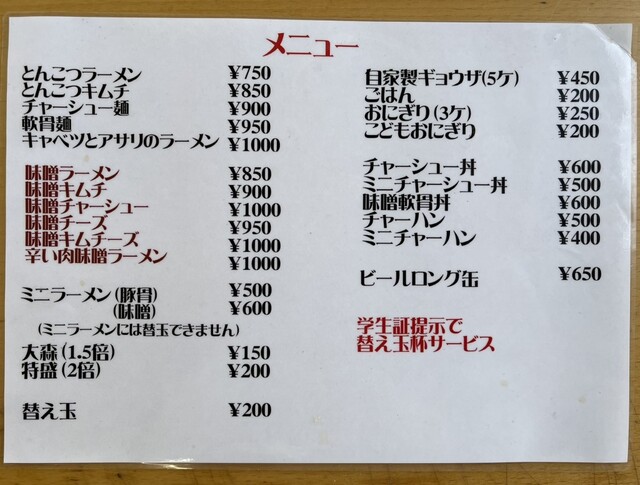 メニュー
とんこつラーメン ¥750
とんこつキムチ ¥850
チャーシュー麺 ¥900
軟骨麺 ¥950
キャベツとアサリのラーメン ¥1000
味噌ラーメン ¥850
味噌キムチ ¥900
味噌チャーシュー ¥1000
味噌チーズ ¥950
味噌キムチーズ ¥1000
辛い肉味噌ラーメン ¥1000
ミニラーメン(豚骨) ¥500
(味噌) ¥600
(ミニラーメンには替玉できません)
大森(1.5倍) ¥150
特盛(2倍) ¥200
替え玉 ¥200
自家製ギョウザ(5ケ) ¥450
ごはん ¥200
おにぎり(3ケ) ¥250
こどもおにぎり ¥200
チャーシュー丼 ¥600
ミニチャーシュー丼 ¥500
味噌軟骨丼 ¥600
チャーハン ¥500
ミニチャーハン ¥400
ビールロング缶 ¥650
学生証提示で
替え玉杯サービス